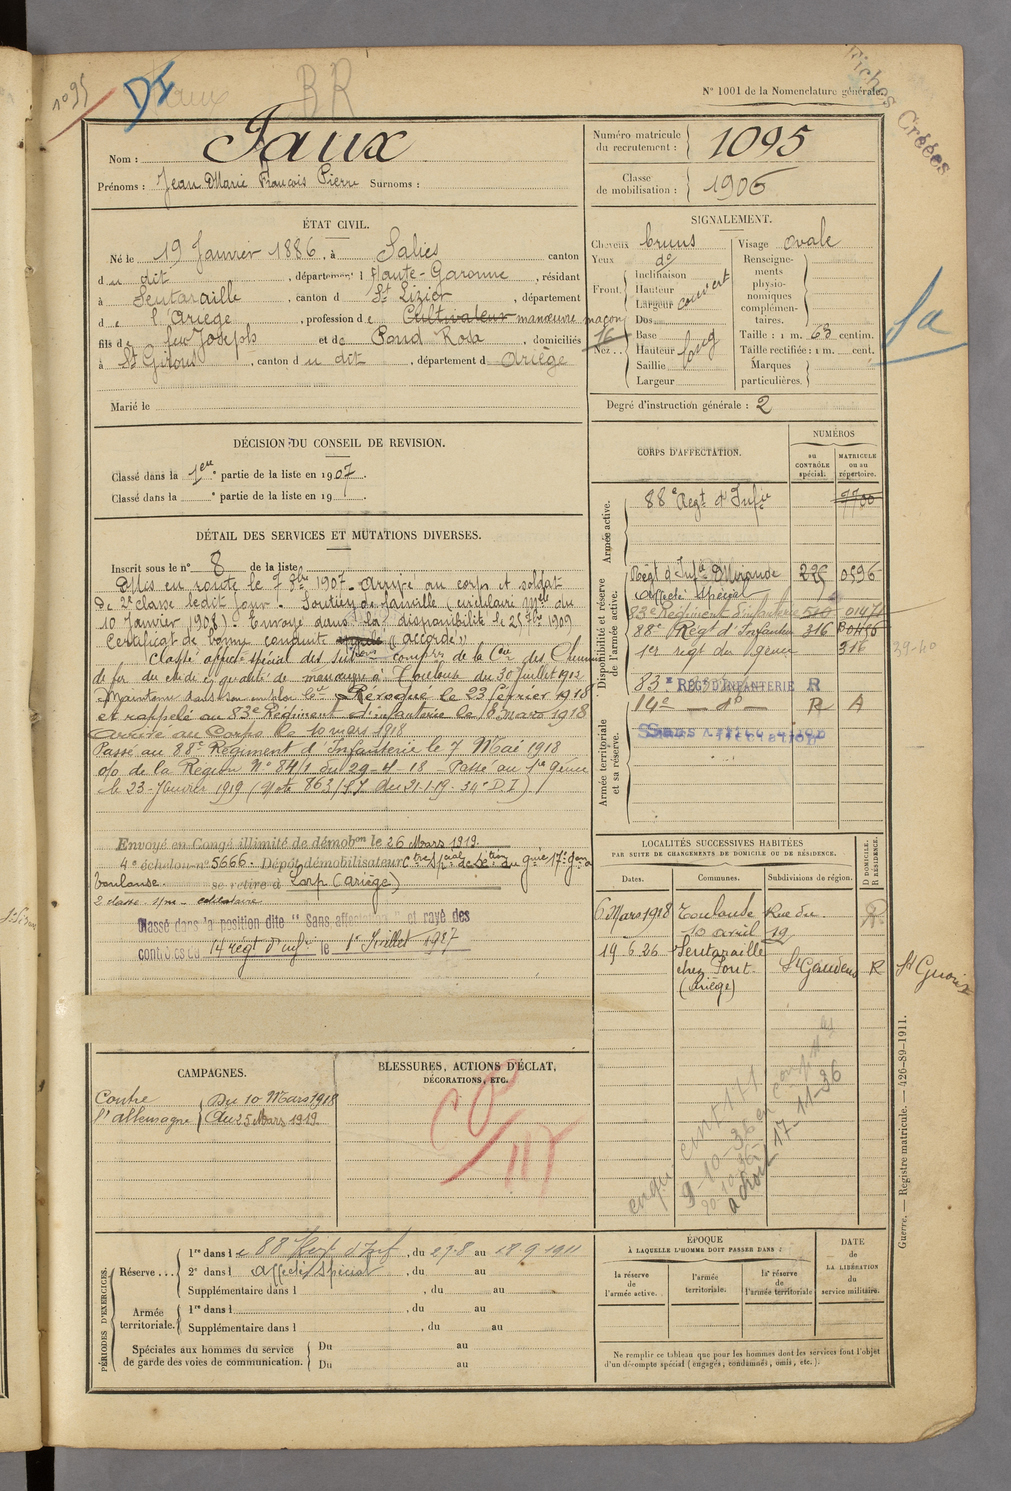 1095
BR
N° 1001 de la Nomenclature générale.
Fiches Créées
Nom : Faux
Prénoms : Jean Marie François Pierre Surnoms :
Numéro matricule du recrutement : 1095
Classe de mobilisation : 1906
ÉTAT CIVIL.
Né le 19 Janvier 1886, à Salies canton
du dit, département Haute-Garonne, résidant
à Sentaraille, canton d St Lizier, département
de l'Ariège, profession de Cultivateur manœuvre maçon
fils de feu Joseph et de Pond Rosa, domiciliés
à St Girons, canton du dit, département d Ariège
Marié le
SIGNALEMENT.
Cheveux bruns
Yeux do
Front. Inclinaison
Hauteur
Largeur couvert
Nez. Dos
Base
Hauteur long
Saillie
Largeur
Visage ovale
Renseignements physionomiques complémentaires.
Taille : 1 m. 63 centim.
Taille rectifiée : 1 m. cent.
Marques particulières.
Degré d'instruction générale : 2
DÉCISION DU CONSEIL DE REVISION.
Classé dans la 1ere partie de la liste en 1907.
Classé dans la partie de la liste en 19
DÉTAIL DES SERVICES ET MUTATIONS DIVERSES.
Inscrit sous le n° 8 de la liste
Mis en route le 7 8bre 1907. Arrivé au corps et soldat
de 2e classe ledit jour. Soutien de famille (circulaire Mlle du
10 Janvier 1908) Envoyé dans la disponibilité le 25 7bre 1909
Certificat de bonne conduite "accordé"
Classé affecté spécial des
de fer du en qualité de manœuvre à Toulouse du 30 Juillet 1912
Maintenu dans son emploi Révoqué le 23 février 1918
et rappelé au 83e Régiment d'infanterie le 8 mars 1918
Arrivé au Corps le 10 mars 1918
Passé au 88e Régiment d'Infanterie le 7 Mai 1918
o/o de la Région N° 84/1 du 29-4-18 Passé au 1er Génie
le 23 Janvier 1919 (Note 863/
Envoyé en Congé illimité de démobon le 26 Mars 1919.
4e échelon n° 5666. Dépôt démobilisateur
Toulouse. se retire à Lorp (Ariège)
Classé dans la position dite "Sans affectation" et rayé des
contrôles du 14 régt d'infie le 1er Juillet 1927
CORPS D'AFFECTATION.
NUMÉROS
au CONTRÔLE spécial.
MATRICULE ou au répertoire.
Armée active.
88e Régt d'Infie 7700
Disponibilité et réserve de l'armée active.
Régt d'Infie Mirande 0596
Affecté Spécial
83e Régiment d'infanterie
88e Régt d'Infanterie 316
1er régt du génie 316
39-40
Armée territoriale et sa réserve.
83e REGt D'INFANTERIE R
14e do R A
Sans affectation
LOCALITÉS SUCCESSIVES HABITÉES
PAR SUITE DE CHANGEMENTS DE DOMICILE OU DE RÉSIDENCE.
Dates. Communes. Subdivisions de région. D DOMICILE. R RÉSIDENCE.
6 Mars 1918 Toulouse Rue du R
10 avril 19
19.6.26 Sentaraille St Gaudens R
chez Pont
(Ariège)
St Girons
CAMPAGNES.
Contre l'Allemagne Du 10 Mars 1918
Au 25 Mars 1919
BLESSURES, ACTIONS D'ÉCLAT, DÉCORATIONS, ETC.
17-11-36
Guerre. — Registre matricule. — 426-89-1911.
PÉRIODES D'EXERCICES.
Réserve ... 1re dans le 88 Regt d'Inf, du 27.8 au 18 9 1911
2e dans l Affecté Spécial, du au
Supplémentaire dans l, du au
Armée territoriale. 1re dans l, du au
Supplémentaire dans l, du au
Spéciales aux hommes du service de garde des voies de communication. Du au
Du au
ÉPOQUE
À LAQUELLE L'HOMME DOIT PASSER DANS :
la réserve de l'armée active.
l'armée territoriale.
la réserve de l'armée territoriale
DATE de LA LIBÉRATION du service militaire.
Ne remplir ce tableau que pour les hommes dont les services font l'objet
d'un décompte spécial (engagés, condamnés, omis, etc.).